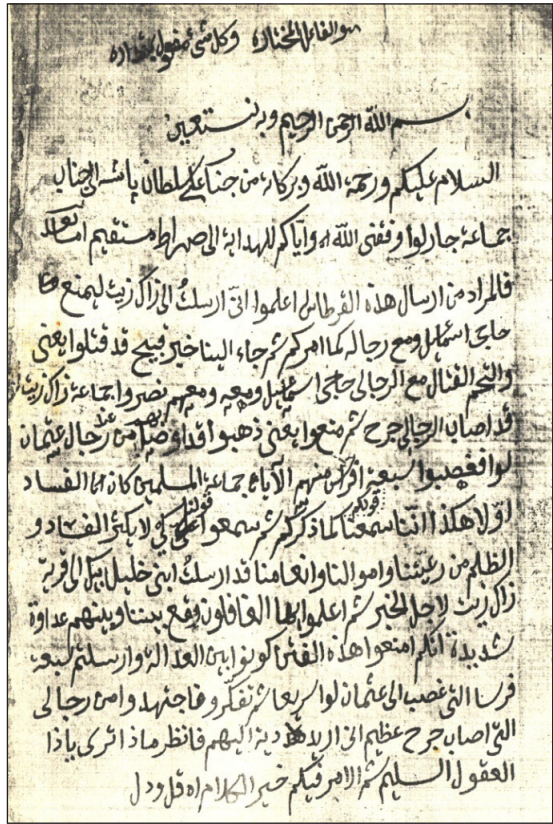 هو الفاعل المختار وكل شيء بمقداره
بسم الله الرحمن الرحيم وبه نستعين
السلام عليكم ورحمة الله وبركاته من جناب علي سلطان پاشه الى جناب
جماعة جارلو وفقني الله اه واياكم للهداية الى صراط مستقيم اما بعد
فالمراد من ارسال هذه القرطاس اعلموا انّي ارسلتُ الى زاكى زيت ليمنع
حاجى اسماعيل ومع رجاله كما امركم ثم جاء الينا خبر قبيح قد قتلوا يعنى
والتحم القتال مع الرجالى حاجى اسماعيل ومعه ومعهم نصروا جماعة زاكى زيت
قد اصاب الرجالى جرح ثم منعوا يعنى ذهبوا من رجال عثمان
لوا فغصبوا سبعة افراس منهم الآيا جماعة المسلمين كان الفساد
اوّلا هكذا انّنا سمعنا قولكم كما ذكركم ثم سمعوا قولنا لا يكثر الفساد و
الظلم من رعيّتنا واموالنا وانعامنا قد ارسلتُ ابنى خليل بيك الى قرية
زاكى زيت لاجل الخبر ثم اعلموا ايّها الغافلون وقع بيننا وبينهم عداوة
شديدة انّكم امنعوا هذه الفتن كونوا بين العدالة وارسلتم سبعة
فرسا التى غصب الى عثمان لوا سريعا ثم تفكّروا فاجتهدوا من رجالى
التى اصاب جرح عظيم الى دية اليهم فانظر ماذا ترى ياذا
العقول السليم ثم الامر فيكم خير الكلام اه قل ودل